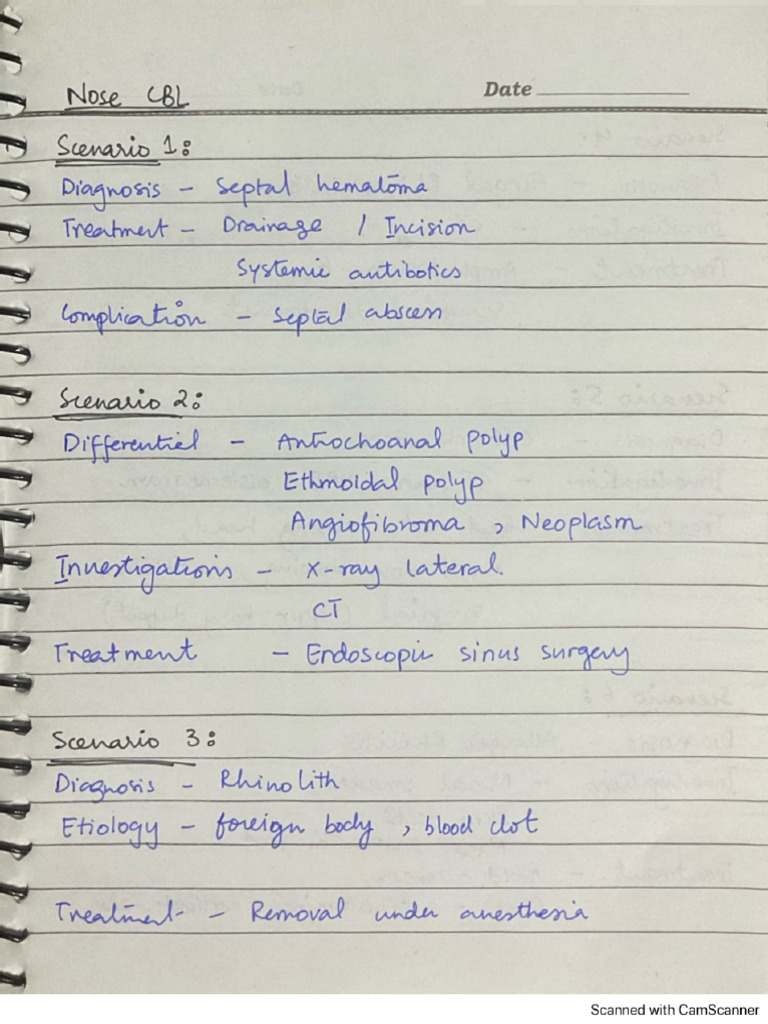 Nose CBL
Date
Scenario 1:
Diagnosis - Septal hematoma
Treatment - Drainage / Incision
Systemic antibotics
Complication - Septal abscess
Scenario 2:
Differential - Antrochoanal polyp
Ethmoidal polyp
Angiofibroma , Neoplasm
Investigations - X-ray lateral.
CT
Treatment - Endoscopic sinus surgery
Scenario 3:
Diagnosis - Rhinolith
Etiology - foreign body , blood clot
Treatment - Removal under anesthesia
Scanned with CamScanner